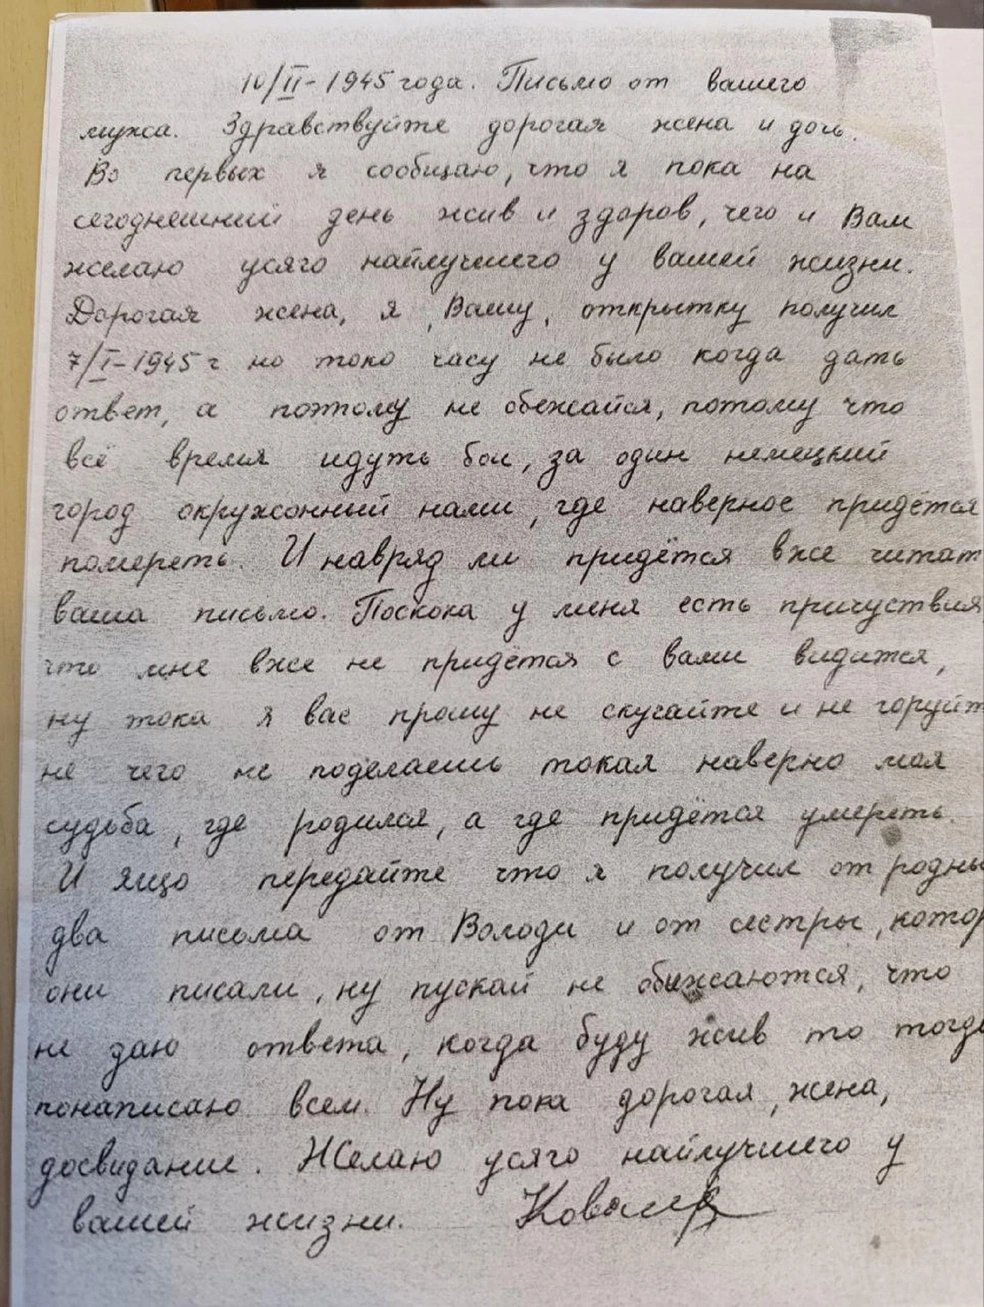 10/II-1945 года. Письмо от вашего
мужа. Здравствуйте дорогая жена и дочь.
Во первых я сообщаю, что я пока на
сегоднешний день жив и здоров, чего и Вам
желаю усяго найлучшего у вашей жизни.
Дорогая жена, я, Вашу, открытку получил
7/I-1945 г но токо часу не было когда дать
ответ, а поэтому не обежайся, потому что
всё время идуть бои, за один немецкий
город окружонный нами, где наверное придётся
помереть. И навряд ли придётся вже читат
ваша письмо. Поскока у меня есть причуствия,
что мне вже не придётся с вами видится,
ну тока я вас прошу не скучайте и не горуйт
не чего не поделаешь токая наверно моя
судьба, где родился, а где придётся умереть.
И ящо передайте что я получил от родны
два письма от Володи и от сестры, котор
они писали, ну пускай не обижаются, что
не даю ответа, когда буду жив то тогда
понаписаю всем. Ну пока дорогая, жена,
досвидание. Желаю усяго найлучшего у
вашей жизни.